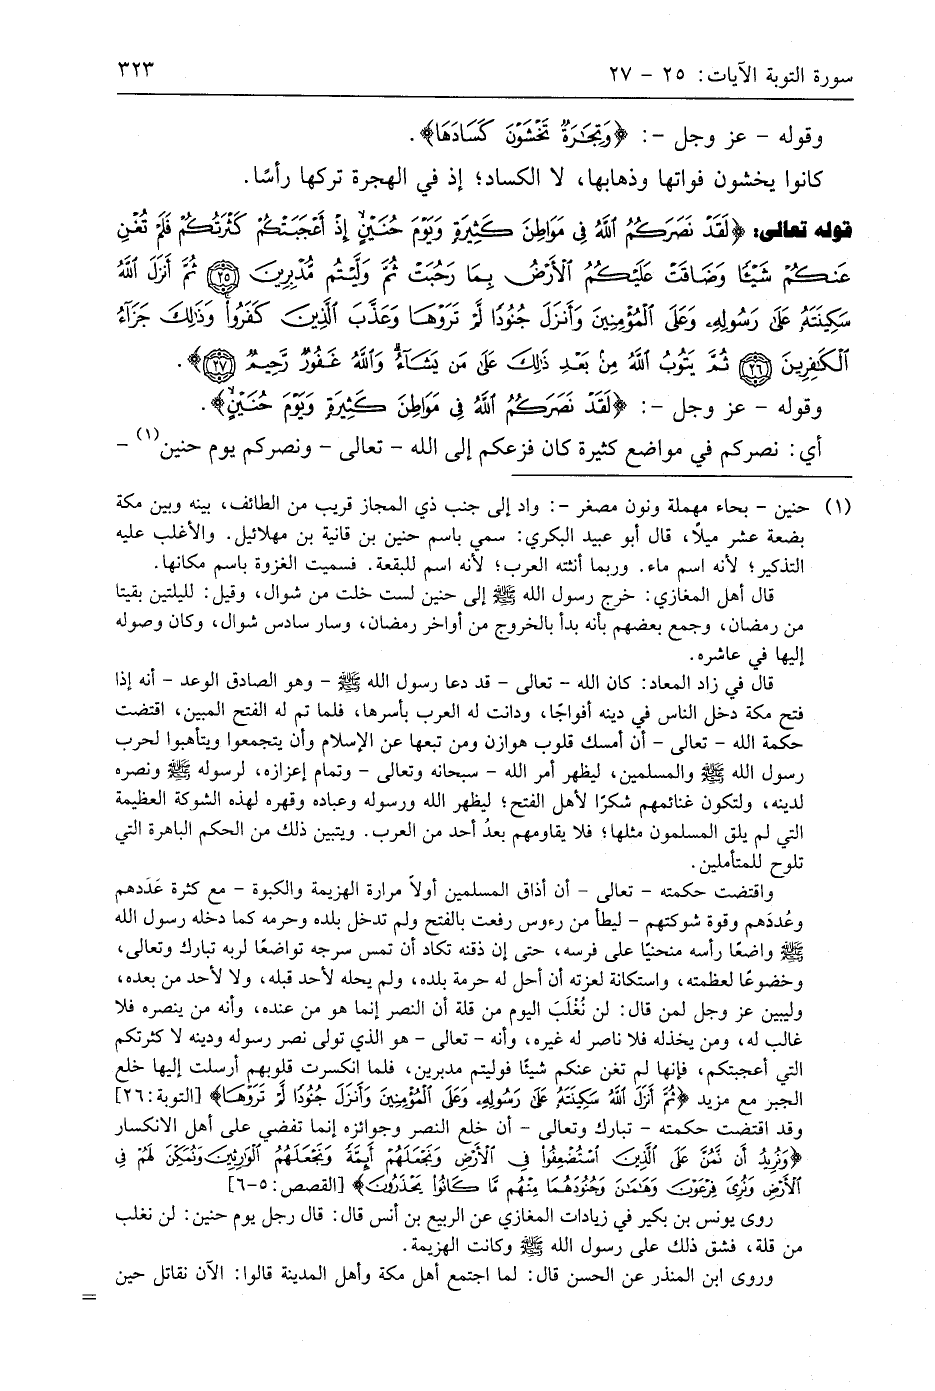 سورة التوبة الآيات: ٢٥ - ٢٧
٣٢٣
وقوله - عز وجل -: ﴿وَتِجَٰرَةٞ تَخۡشَوۡنَ كَسَادَهَا﴾.
كانوا يخشون فواتها وذهابها، لا الكساد؛ إذ في الهجرة تركها رأسًا.
قوله تعالى: ﴿لَقَدۡ نَصَرَكُمُ ٱللَّهُ فِي مَوَاطِنَ كَثِيرَةٖ وَيَوۡمَ حُنَيۡنٍ إِذۡ أَعۡجَبَتۡكُمۡ كَثۡرَتُكُمۡ فَلَمۡ تُغۡنِ
عَنكُمۡ شَيۡـٔٗا وَضَاقَتۡ عَلَيۡكُمُ ٱلۡأَرۡضُ بِمَا رَحُبَتۡ ثُمَّ وَلَّيۡتُم مُّدۡبِرِينَ ٢٥ ثُمَّ أَنزَلَ ٱللَّهُ
سَكِينَتَهُۥ عَلَىٰ رَسُولِهِۦ وَعَلَى ٱلۡمُؤۡمِنِينَ وَأَنزَلَ جُنُودٗا لَّمۡ تَرَوۡهَا وَعَذَّبَ ٱلَّذِينَ كَفَرُواْۚ وَذَٰلِكَ جَزَآءُ
ٱلۡكَٰفِرِينَ ٢٦ ثُمَّ يَتُوبُ ٱللَّهُ مِنۢ بَعۡدِ ذَٰلِكَ عَلَىٰ مَن يَشَآءُۗ وَٱللَّهُ غَفُورٞ رَّحِيمٞ ٢٧﴾.
وقوله - عز وجل -: ﴿لَقَدۡ نَصَرَكُمُ ٱللَّهُ فِي مَوَاطِنَ كَثِيرَةٖ وَيَوۡمَ حُنَيۡنٍ﴾.
أي: نصركم في مواضع كثيرة كان فزعكم إلى الله - تعالى - ونصركم يوم حنين(١) -
(١) حنين - بحاء مهملة ونون مصغر -: واد إلى جنب ذي المجاز قريب من الطائف، بينه وبين مكة
بضعة عشر ميلًا، قال أبو عبيد البكري: سمي باسم حنين بن قانية بن مهلائيل. والأغلب عليه
التذكير؛ لأنه اسم ماء. وربما أنثته العرب؛ لأنه اسم للبقعة. فسميت الغزوة باسم مكانها.
قال أهل المغازي: خرج رسول الله ﷺ إلى حنين لست خلت من شوال، وقيل: لليلتين بقيتا
من رمضان، وجمع بعضهم بأنه بدأ بالخروج من أواخر رمضان، وسار سادس شوال، وكان وصوله
إليها في عاشره.
قال في زاد المعاد: كان الله - تعالى - قد دعا رسول الله ﷺ - وهو الصادق الوعد - أنه إذا
فتح مكة دخل الناس في دينه أفواجًا، ودانت له العرب بأسرها، فلما تم له الفتح المبين، اقتضت
حكمة الله - تعالى - أن أمسك قلوب هوازن ومن تبعها عن الإسلام وأن يتجمعوا ويتأهبوا لحرب
رسول الله ﷺ والمسلمين، ليظهر أمر الله - سبحانه وتعالى - وتمام إعزازه، لرسوله ﷺ ونصره
لدينه، ولتكون غنائمهم شكرًا لأهل الفتح؛ ليظهر الله ورسوله وعباده وقهره لهذه الشوكة العظيمة
التي لم يلق المسلمون مثلها؛ فلا يقاومهم بعدُ أحد من العرب. ويتبين ذلك من الحكم الباهرة التي
تلوح للمتأملين.
واقتضت حكمته - تعالى - أن أذاق المسلمين أولاً مرارة الهزيمة والكبوة - مع كثرة عَدَدهم
وعُددَهم وقوة شوكتهم - ليطأ من رءوس رفعت بالفتح ولم تدخل بلده وحرمه كما دخله رسول الله
ﷺ واضعًا رأسه منحنيًا على فرسه، حتى إن ذقنه تكاد أن تمس سرجه تواضعًا لربه تبارك وتعالى،
وخضوعًا لعظمته، واستكانة لعزته أن أحل له حرمة بلده، ولم يحله لأحد قبله، ولا لأحد من بعده،
وليبين عز وجل لمن قال: لن نُغْلَبَ اليوم من قلة أن النصر إنما هو من عنده، وأنه من ينصره فلا
غالب له، ومن يخذله فلا ناصر له غيره، وأنه - تعالى - هو الذي تولى نصر رسوله ودينه لا كثرتكم
التي أعجبتكم، فإنها لم تغن عنكم شيئًا فوليتم مدبرين، فلما انكسرت قلوبهم أرسلت إليها خلع
الجبر مع مزيد ﴿ثُمَّ أَنزَلَ ٱللَّهُ سَكِينَتَهُۥ عَلَىٰ رَسُولِهِۦ وَعَلَى ٱلۡمُؤۡمِنِينَ وَأَنزَلَ جُنُودٗا لَّمۡ تَرَوۡهَا﴾ [التوبة:٢٦]
وقد اقتضت حكمته - تبارك وتعالى - أن خلع النصر وجوائزه إنما تفضي على أهل الانكسار
﴿وَنُرِيدُ أَن نَّمُنَّ عَلَى ٱلَّذِينَ ٱسۡتُضۡعِفُواْ فِي ٱلۡأَرۡضِ وَنَجۡعَلَهُمۡ أَئِمَّةٗ وَنَجۡعَلَهُمُ ٱلۡوَٰرِثِينَ وَنُمَكِّنَ لَهُمۡ فِي
ٱلۡأَرۡضِ وَنُرِيَ فِرۡعَوۡنَ وَهَٰمَٰنَ وَجُنُودَهُمَا مِنۡهُم مَّا كَانُواْ يَحۡذَرُونَ﴾ [القصص:٥-٦]
روى يونس بن بكير في زيادات المغازي عن الربيع بن أنس قال: قال رجل يوم حنين: لن نغلب
من قلة، فشق ذلك على رسول الله ﷺ وكانت الهزيمة.
وروى ابن المنذر عن الحسن قال: لما اجتمع أهل مكة وأهل المدينة قالوا: الآن نقاتل حين
=